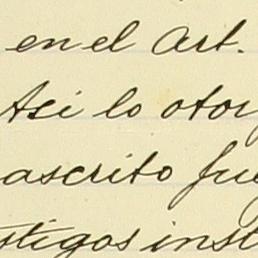 en el art.
Asi lo otor
ascrito fue
stigos inst